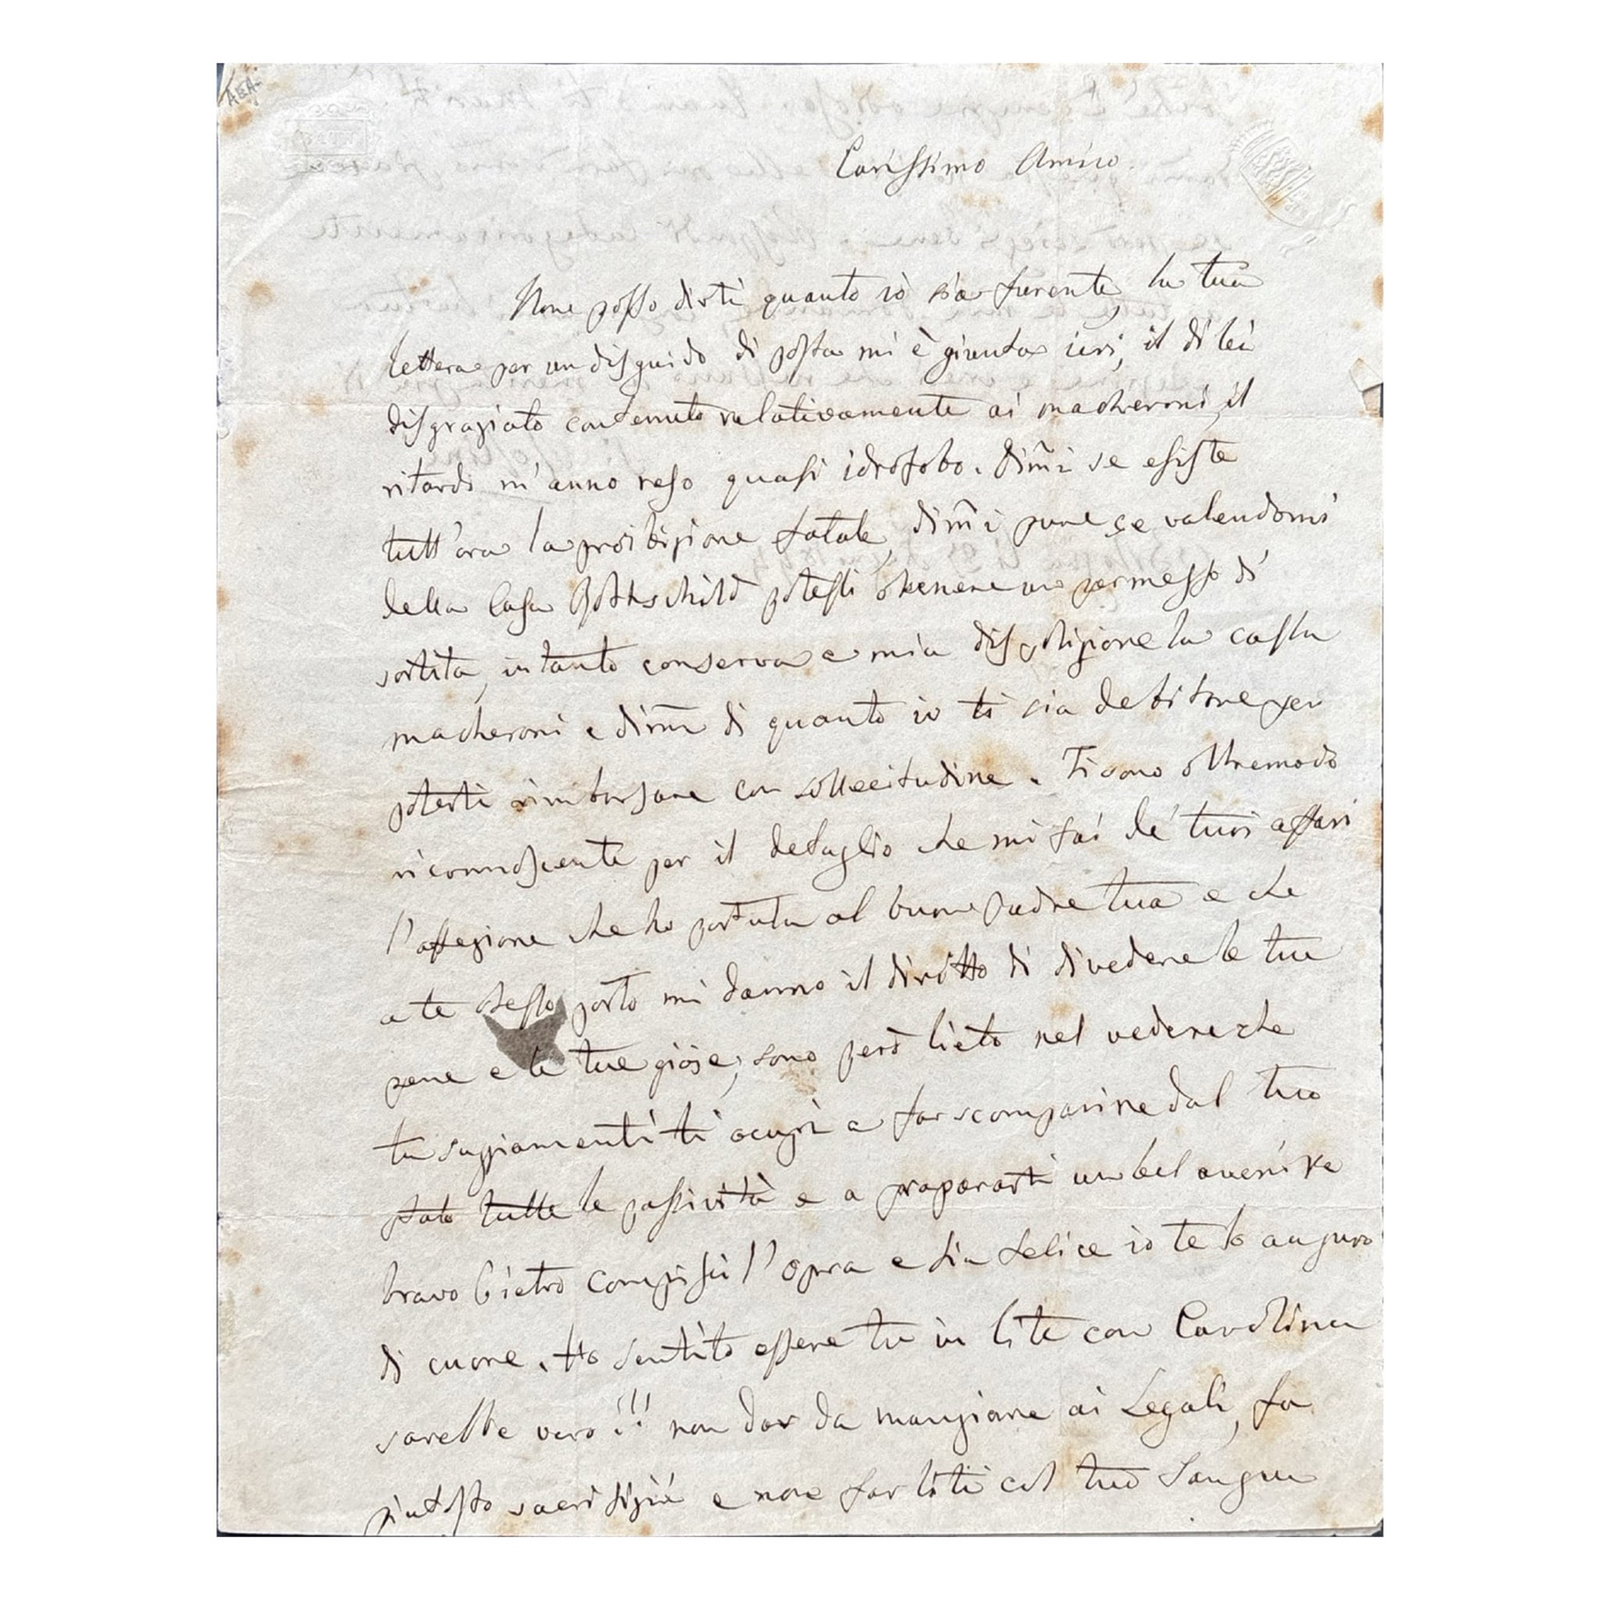 Carissimo Amico.
Non posso dirti quanto io sia furente, la tua
lettera per un disguido di posta mi è giunta ieri, il di lei
disgraziato contenuto relativamente ai macheroni, il
ritardi m'anno reso quasi idrofobo. Dim̃i se esiste
tutt'ora la proibizione fatale, dim̃i pure se valendomi
della Casa Rothschild potesti ottenere un permesso di
sortita, intanto conserva a mia disposizione la cassa
macheroni e dim̃i di quanto io ti sia debitore per
poterti rimborsare con sollecitudine. Ti sono oltremodo
riconnoscente per il detaglio che mi fai de' tuoi affari
l'affezione che ho portata al buon Padre tuo e che
a te stesso porto mi danno il diritto di dividere le tue
pene e le tue gioje; sono però lieto nel vedere che
tu saggiamente ti ocupi a far scomparire dal tuo
stato tutte le passività e a prepararti un bel avenire
bravo Pietro compisci l'opra e sia felice io te lo auguro
di cuore. Ho sentito essere tu in lite con Carolina
sarebbe vero!!! non dar da mangiare ai Legali, fa
piutosto sacrifizii e non far liti col tuo sangue